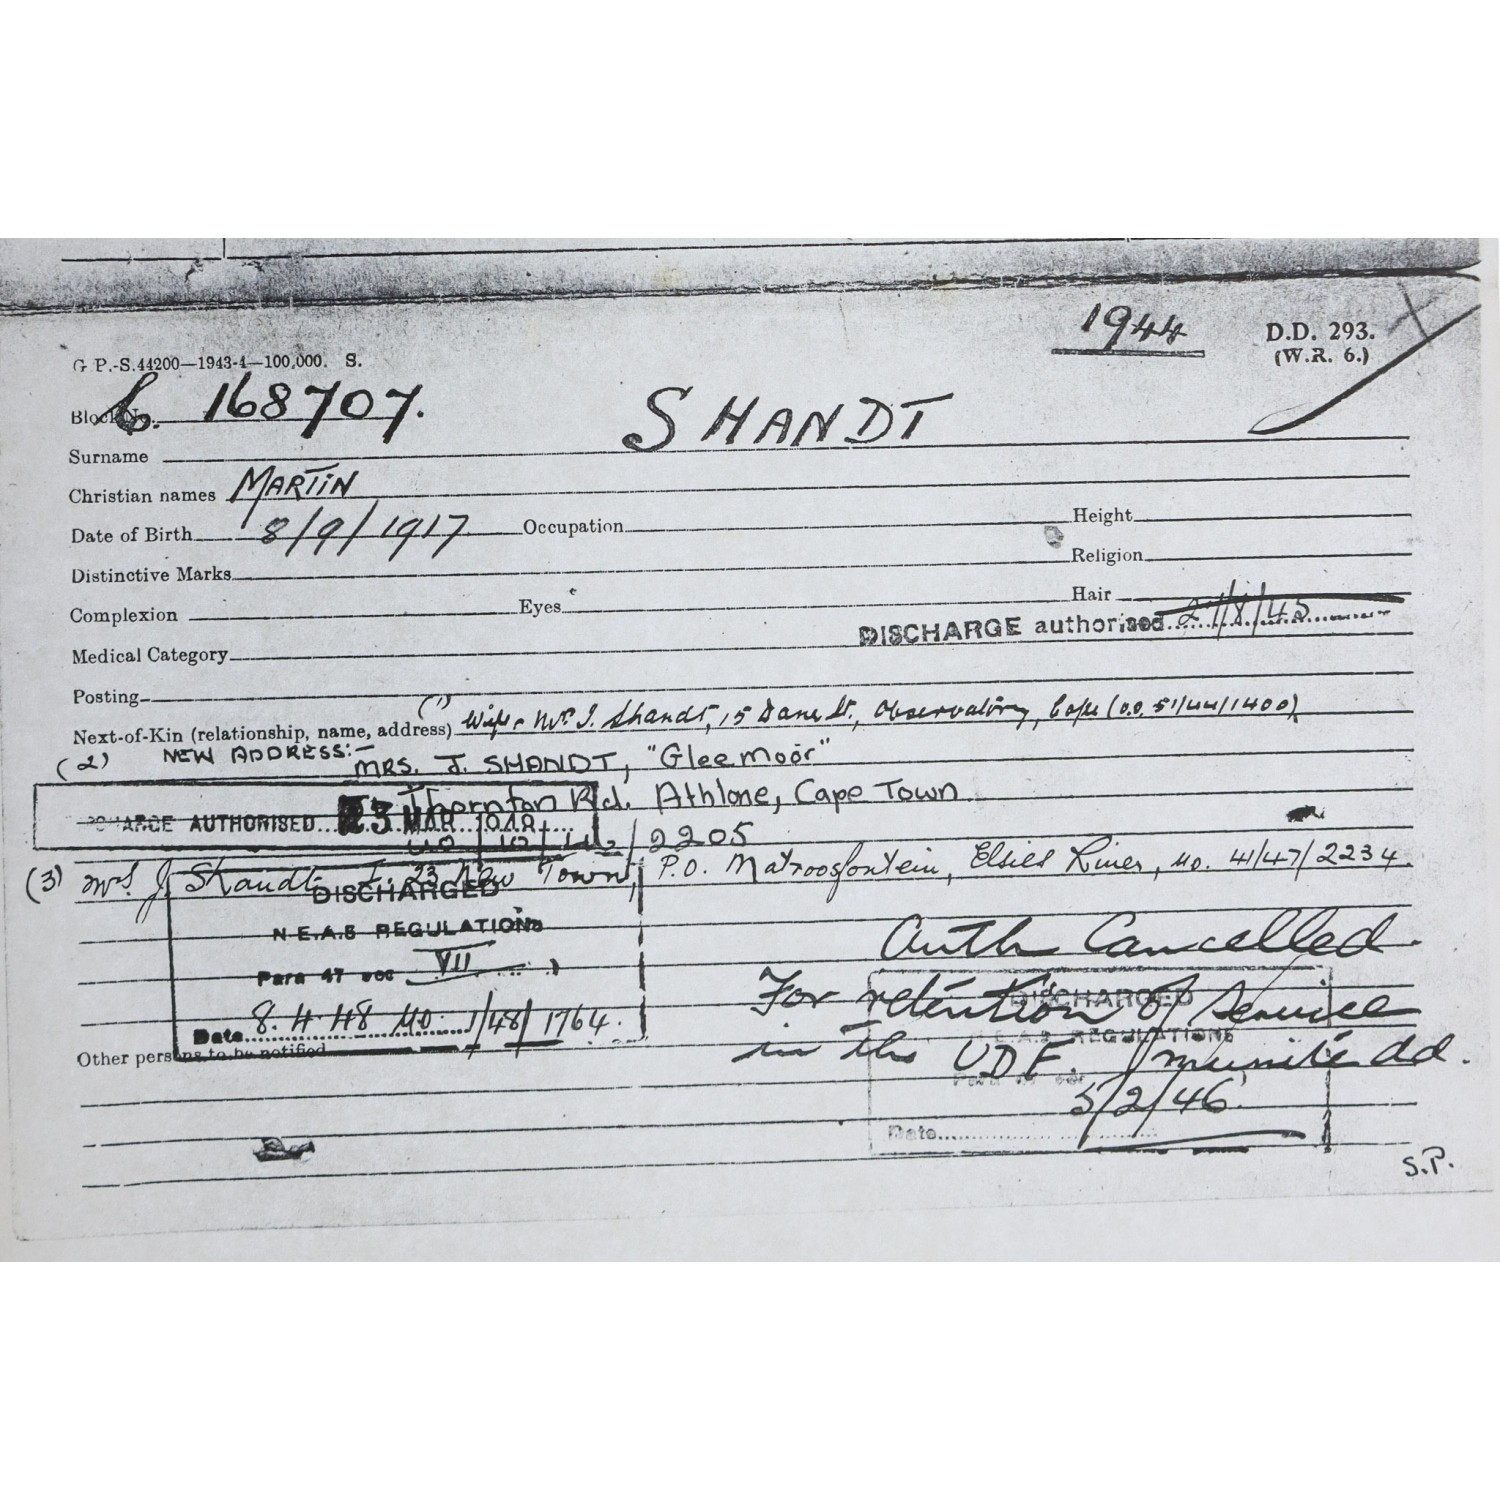 1944
D.D. 293.
(W.R. 6.)
G P.-S.44200—1943-4—100,000. S.
Block No. C. 168707.
Surname SHANDT
Christian names MARTIN
Date of Birth 8/9/1917 Occupation Height
Distinctive Marks Religion
Complexion Eyes Hair
DISCHARGE authorised 27/8/45
Medical Category
Posting
Next-of-Kin (relationship, name, address) (1) Wife - Mrs J. Shandt, 15 Dane St., Observatory, Cape (O.O. 51/44/1400)
(2) NEW ADDRESS:- MRS. J. SHANDT, "Gleemoor"
Thornton Rd. Athlone, Cape Town
AUTHORISED 23 MAR 1948
/2205
(3) Mrs J. Shandt 23 New Town, P.O. Matroosfontein, Elsies River, MO. 41/47/2234.
DISCHARGED
N.E.A.S REGULATIONS
Para 47 sec VII
Date 8.4.48 MO. 1/48/1764.
Auth Cancelled.
For retention of service
in the UDF.
5/2/46.
DISCHARGED
E.A.S REGULATIONS
Date
Other persons to be notified
S.P.